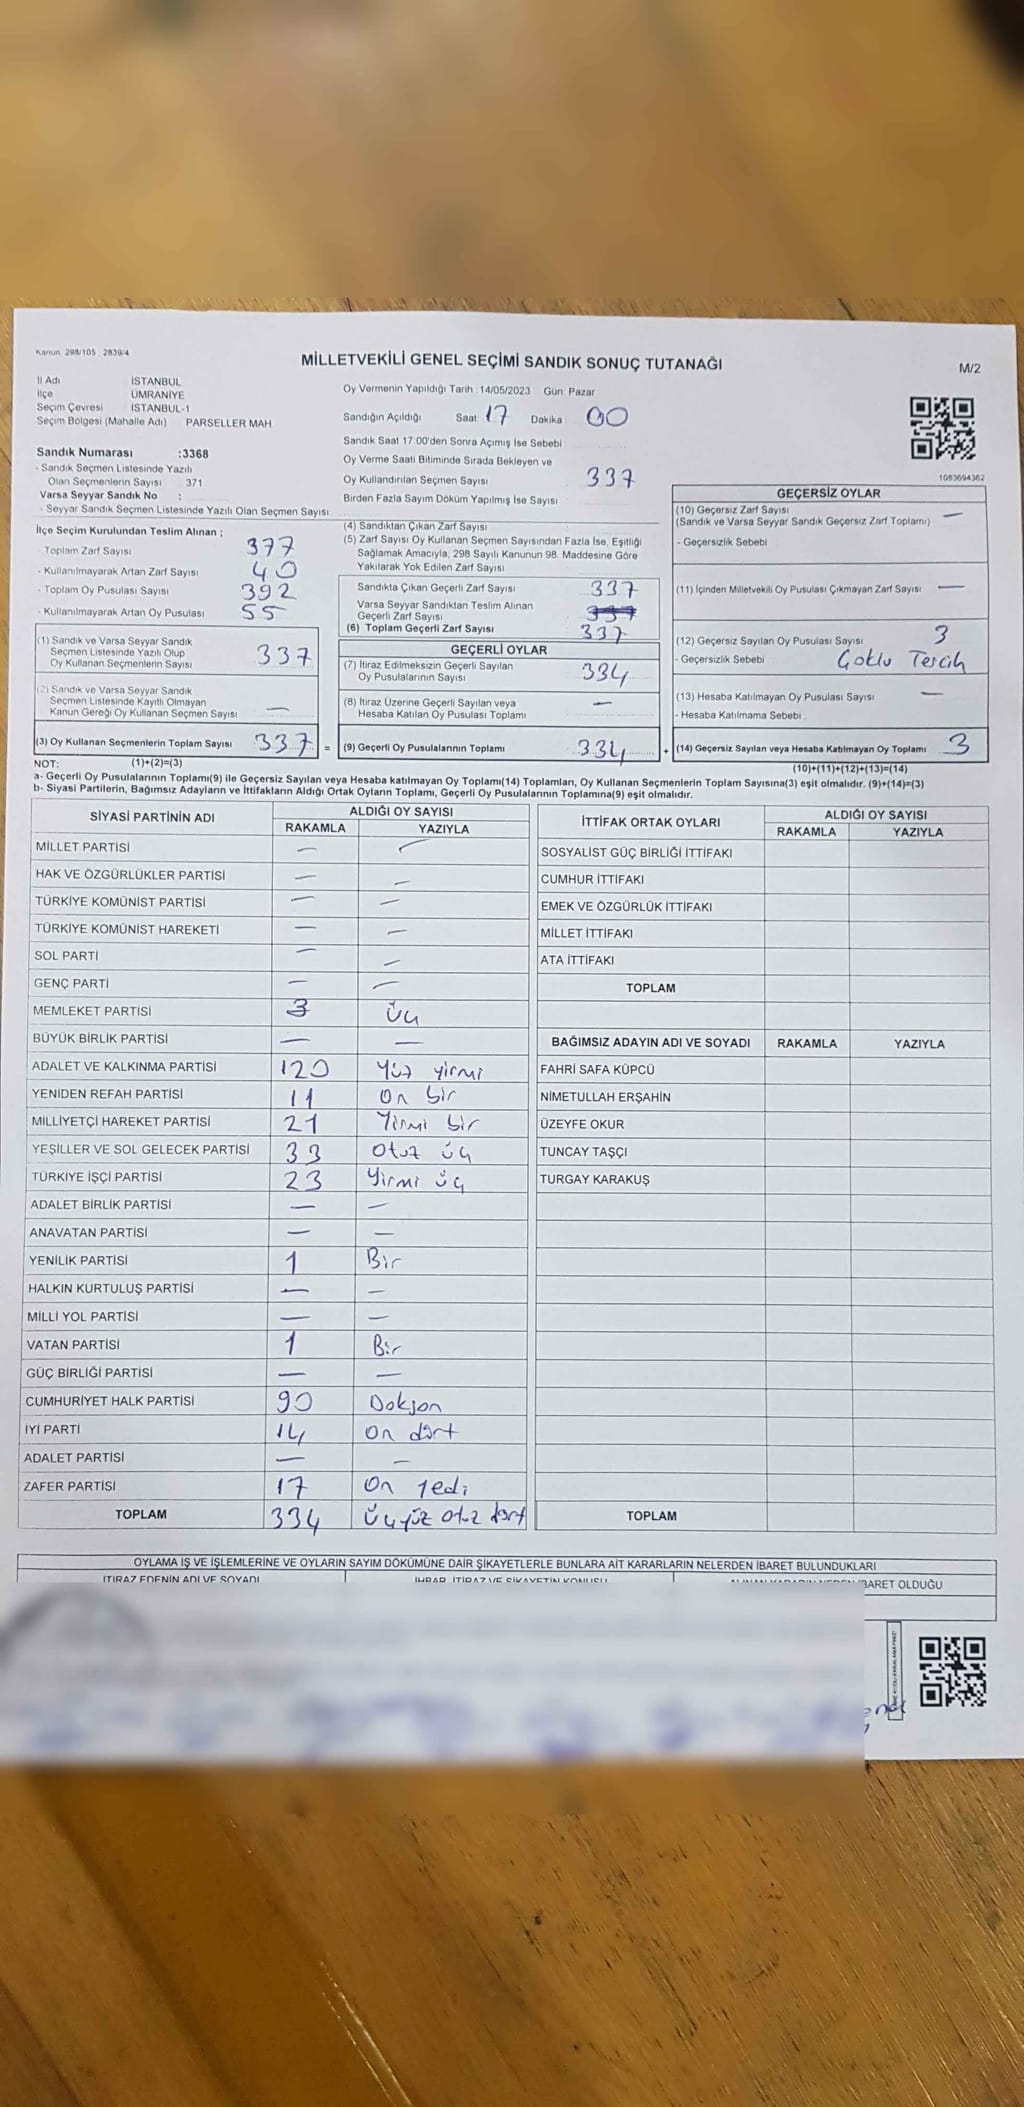 Kanun: 298/105 , 2839/4
MİLLETVEKİLİ GENEL SEÇİMİ SANDIK SONUÇ TUTANAĞI
M/2
İl Adı İSTANBUL
İlçe ÜMRANİYE
Seçim Çevresi İSTANBUL-1
Seçim Bölgesi (Mahalle Adı) PARSELLER MAH
Oy Vermenin Yapıldığı Tarih : 14/05/2023 Gün: Pazar
Sandığın Açıldığı Saat: 17 Dakika : 00
Sandık Saat 17:00'den Sonra Açımış İse Sebebi
Oy Verme Saati Bitiminde Sırada Bekleyen ve
Oy Kullandırılan Seçmen Sayısı 337
Birden Fazla Sayım Döküm Yapılmış İse Sayısı
Sandık Numarası :3368
- Sandık Seçmen Listesinde Yazılı
Olan Seçmenlerin Sayısı : 371
Varsa Seyyar Sandık No :
- Seyyar Sandık Seçmen Listesinde Yazılı Olan Seçmen Sayısı:
1083694362
İlçe Seçim Kurulundan Teslim Alınan ;
- Toplam Zarf Sayısı 377
- Kullanılmayarak Artan Zarf Sayısı 40
- Toplam Oy Pusulası Sayısı 392
- Kullanılmayarak Artan Oy Pusulası 55
(1) Sandık ve Varsa Seyyar Sandık
Seçmen Listesinde Yazılı Olup
Oy Kullanan Seçmenlerin Sayısı 337
(2) Sandık ve Varsa Seyyar Sandık
Seçmen Listesinde Kayıtlı Olmayan
Kanun Gereği Oy Kullanan Seçmen Sayısı —
(3) Oy Kullanan Seçmenlerin Toplam Sayısı 337 =
(1)+(2)=(3)
(4) Sandıktan Çıkan Zarf Sayısı
(5) Zarf Sayısı Oy Kullanan Seçmen Sayısından Fazla İse, Eşitliği
Sağlamak Amacıyla, 298 Sayılı Kanunun 98. Maddesine Göre
Yakılarak Yok Edilen Zarf Sayısı
Sandıkta Çıkan Geçerli Zarf Sayısı 337
Varsa Seyyar Sandıktan Teslim Alınan
Geçerli Zarf Sayısı 337
(6) Toplam Geçerli Zarf Sayısı 337
GEÇERLİ OYLAR
(7) İtiraz Edilmeksizin Geçerli Sayılan
Oy Pusulalarının Sayısı 334
(8) İtiraz Üzerine Geçerli Sayılan veya
Hesaba Katılan Oy Pusulası Toplamı —
(9) Geçerli Oy Pusulalarının Toplamı 334 +
GEÇERSİZ OYLAR
(10) Geçersiz Zarf Sayısı
(Sandık ve Varsa Seyyar Sandık Geçersiz Zarf Toplamı) —
- Geçersizlik Sebebi
(11) İçinden Milletvekili Oy Pusulası Çıkmayan Zarf Sayısı —
(12) Geçersiz Sayılan Oy Pusulası Sayısı 3
- Geçersizlik Sebebi Çoklu Tercih
(13) Hesaba Katılmayan Oy Pusulası Sayısı —
- Hesaba Katılmama Sebebi :
(14) Geçersiz Sayılan veya Hesaba Katılmayan Oy Toplamı 3
(10)+(11)+(12)+(13)=(14)
NOT:
a- Geçerli Oy Pusulalarının Toplamı(9) ile Geçersiz Sayılan veya Hesaba katılmayan Oy Toplamı(14) Toplamları, Oy Kullanan Seçmenlerin Toplam Sayısına(3) eşit olmalıdır. (9)+(14)=(3)
b- Siyasi Partilerin, Bağımsız Adayların ve İttifakların Aldığı Ortak Oyların Toplamı, Geçerli Oy Pusulalarının Toplamına(9) eşit olmalıdır.
SİYASİ PARTİNİN ADI ALDIĞI OY SAYISI
RAKAMLA YAZIYLA
MİLLET PARTİSİ — —
HAK VE ÖZGÜRLÜKLER PARTİSİ — —
TÜRKİYE KOMÜNİST PARTİSİ — —
TÜRKİYE KOMÜNİST HAREKETİ — —
SOL PARTİ — —
GENÇ PARTİ — —
MEMLEKET PARTİSİ 3 üç
BÜYÜK BİRLİK PARTİSİ — —
ADALET VE KALKINMA PARTİSİ 120 Yüz yirmi
YENİDEN REFAH PARTİSİ 11 On bir
MİLLİYETÇİ HAREKET PARTİSİ 21 Yirmi bir
YEŞİLLER VE SOL GELECEK PARTİSİ 33 Otuz üç
TÜRKİYE İŞÇİ PARTİSİ 23 Yirmi üç
ADALET BİRLİK PARTİSİ — —
ANAVATAN PARTİSİ — —
YENİLİK PARTİSİ 1 Bir
HALKIN KURTULUŞ PARTİSİ — —
MİLLİ YOL PARTİSİ — —
VATAN PARTİSİ 1 Bir
GÜÇ BİRLİĞİ PARTİSİ — —
CUMHURİYET HALK PARTİSİ 90 Doksan
İYİ PARTİ 14 On dört
ADALET PARTİSİ — —
ZAFER PARTİSİ 17 On yedi
TOPLAM 334 üçyüz otuz dört
İTTİFAK ORTAK OYLARI ALDIĞI OY SAYISI
RAKAMLA YAZIYLA
SOSYALİST GÜÇ BİRLİĞİ İTTİFAKI
CUMHUR İTTİFAKI
EMEK VE ÖZGÜRLÜK İTTİFAKI
MİLLET İTTİFAKI
ATA İTTİFAKI
TOPLAM
BAĞIMSIZ ADAYIN ADI VE SOYADI RAKAMLA YAZIYLA
FAHRİ SAFA KÜPCÜ
NİMETULLAH ERŞAHİN
ÜZEYFE OKUR
TUNCAY TAŞÇI
TURGAY KARAKUŞ
TOPLAM
OYLAMA İŞ VE İŞLEMLERİNE VE OYLARIN SAYIM DÖKÜMÜNE DAİR ŞİKAYETLERLE BUNLARA AİT KARARLARIN NELERDEN İBARET BULUNDUKLARI
İTİRAZ EDENİN ADI VE SOYADI İHBAR, İTİRAZ VE ŞİKAYETİN KONUSU İBARET OLDUĞU